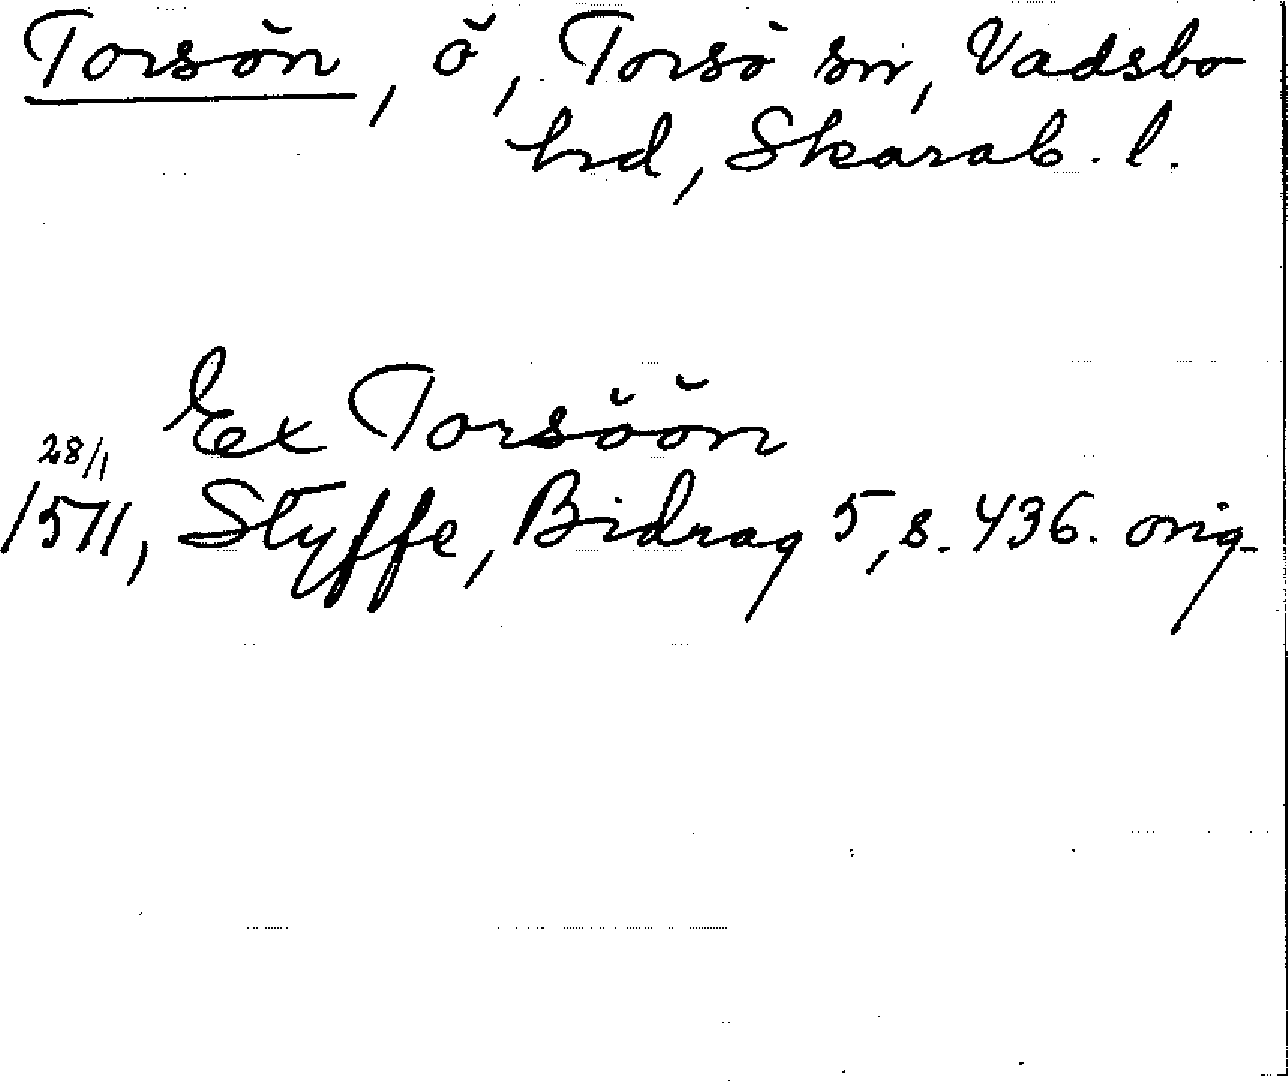 Torsön, ö, Torsö sn, Vadsbo
hrd, Skarab. l.
Ex Torsöön
28/1
1511, Styffe, Bidrag 5, s. 436. orig.